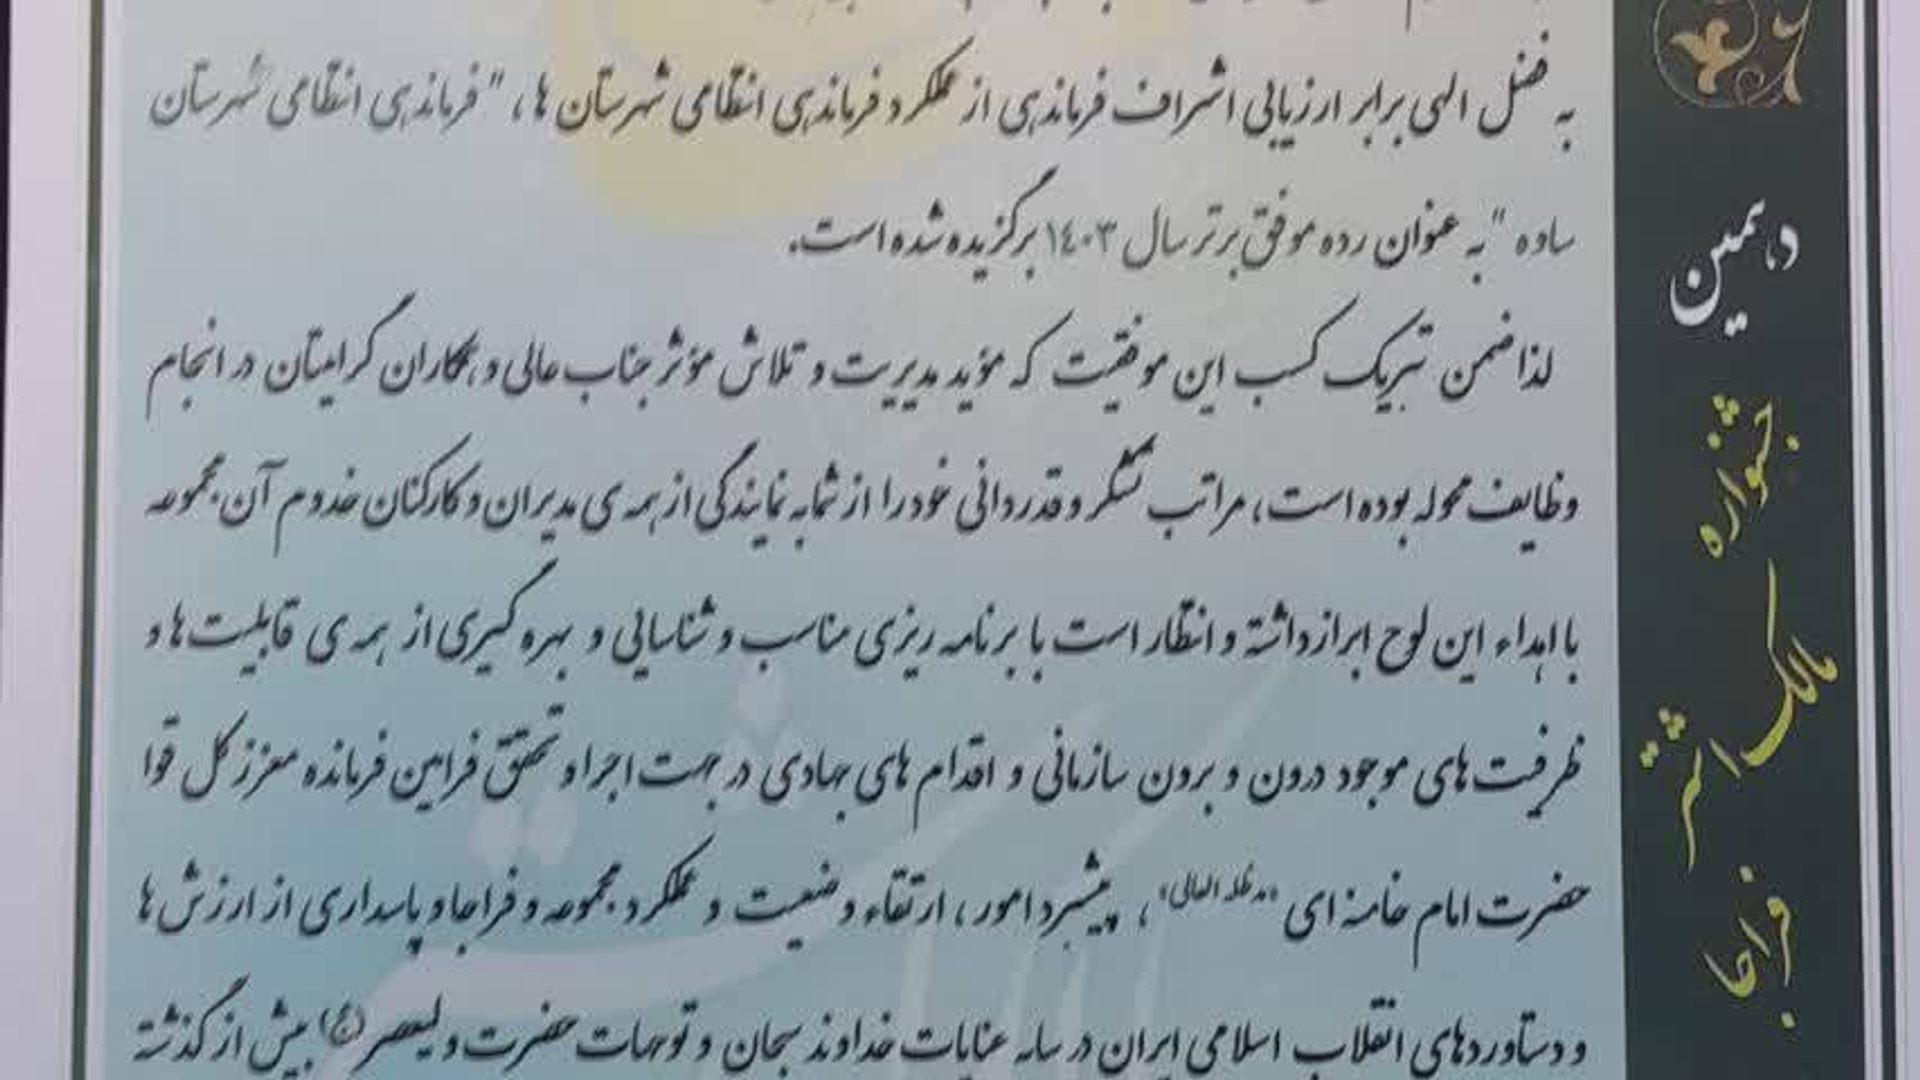 به فضل الهی برابر ارزیابی اشراف فرماندهی از عملکرد فرماندهی انتظامی شهرستان ها، "فرماندهی انتظامی شهرستان
ساوه "به عنوان رده موفق برتر سال ۱۴۰۳ برگزیده شده است.
لذا ضمن تبریک کسب این موفقیت که مؤید مدیریت و تلاش مؤثر جناب عالی و همکاران گرامیتان در انجام
وظایف محوله بوده است، مراتب تشکر و قدردانی خود را از شما به نمایندگی از همه ی مدیران و کارکنان خدوم آن مجموعه
با اهداء این لوح ابراز داشته و انتظار است با برنامه ریزی مناسب و شناسایی و بهره گیری از همه ی قابلیت ها و
ظرفیت های موجود درون و برون سازمانی و اقدام های جهادی در جهت اجرا و تحقق فرامین فرمانده معزز کل قوا
حضرت امام خامنه ای "مدظله العالی"، پیشبرد امور، ارتقاء وضعیت و عملکرد مجموعه و فراجا و پاسداری از ارزش ها
و دستاوردهای انقلاب اسلامی ایران در سایه عنایات خداوند سبحان و توجهات حضرت ولیعصر (عج) بیش از گذشته
دهمین
جشنواره
مالک اشتر
فراجا